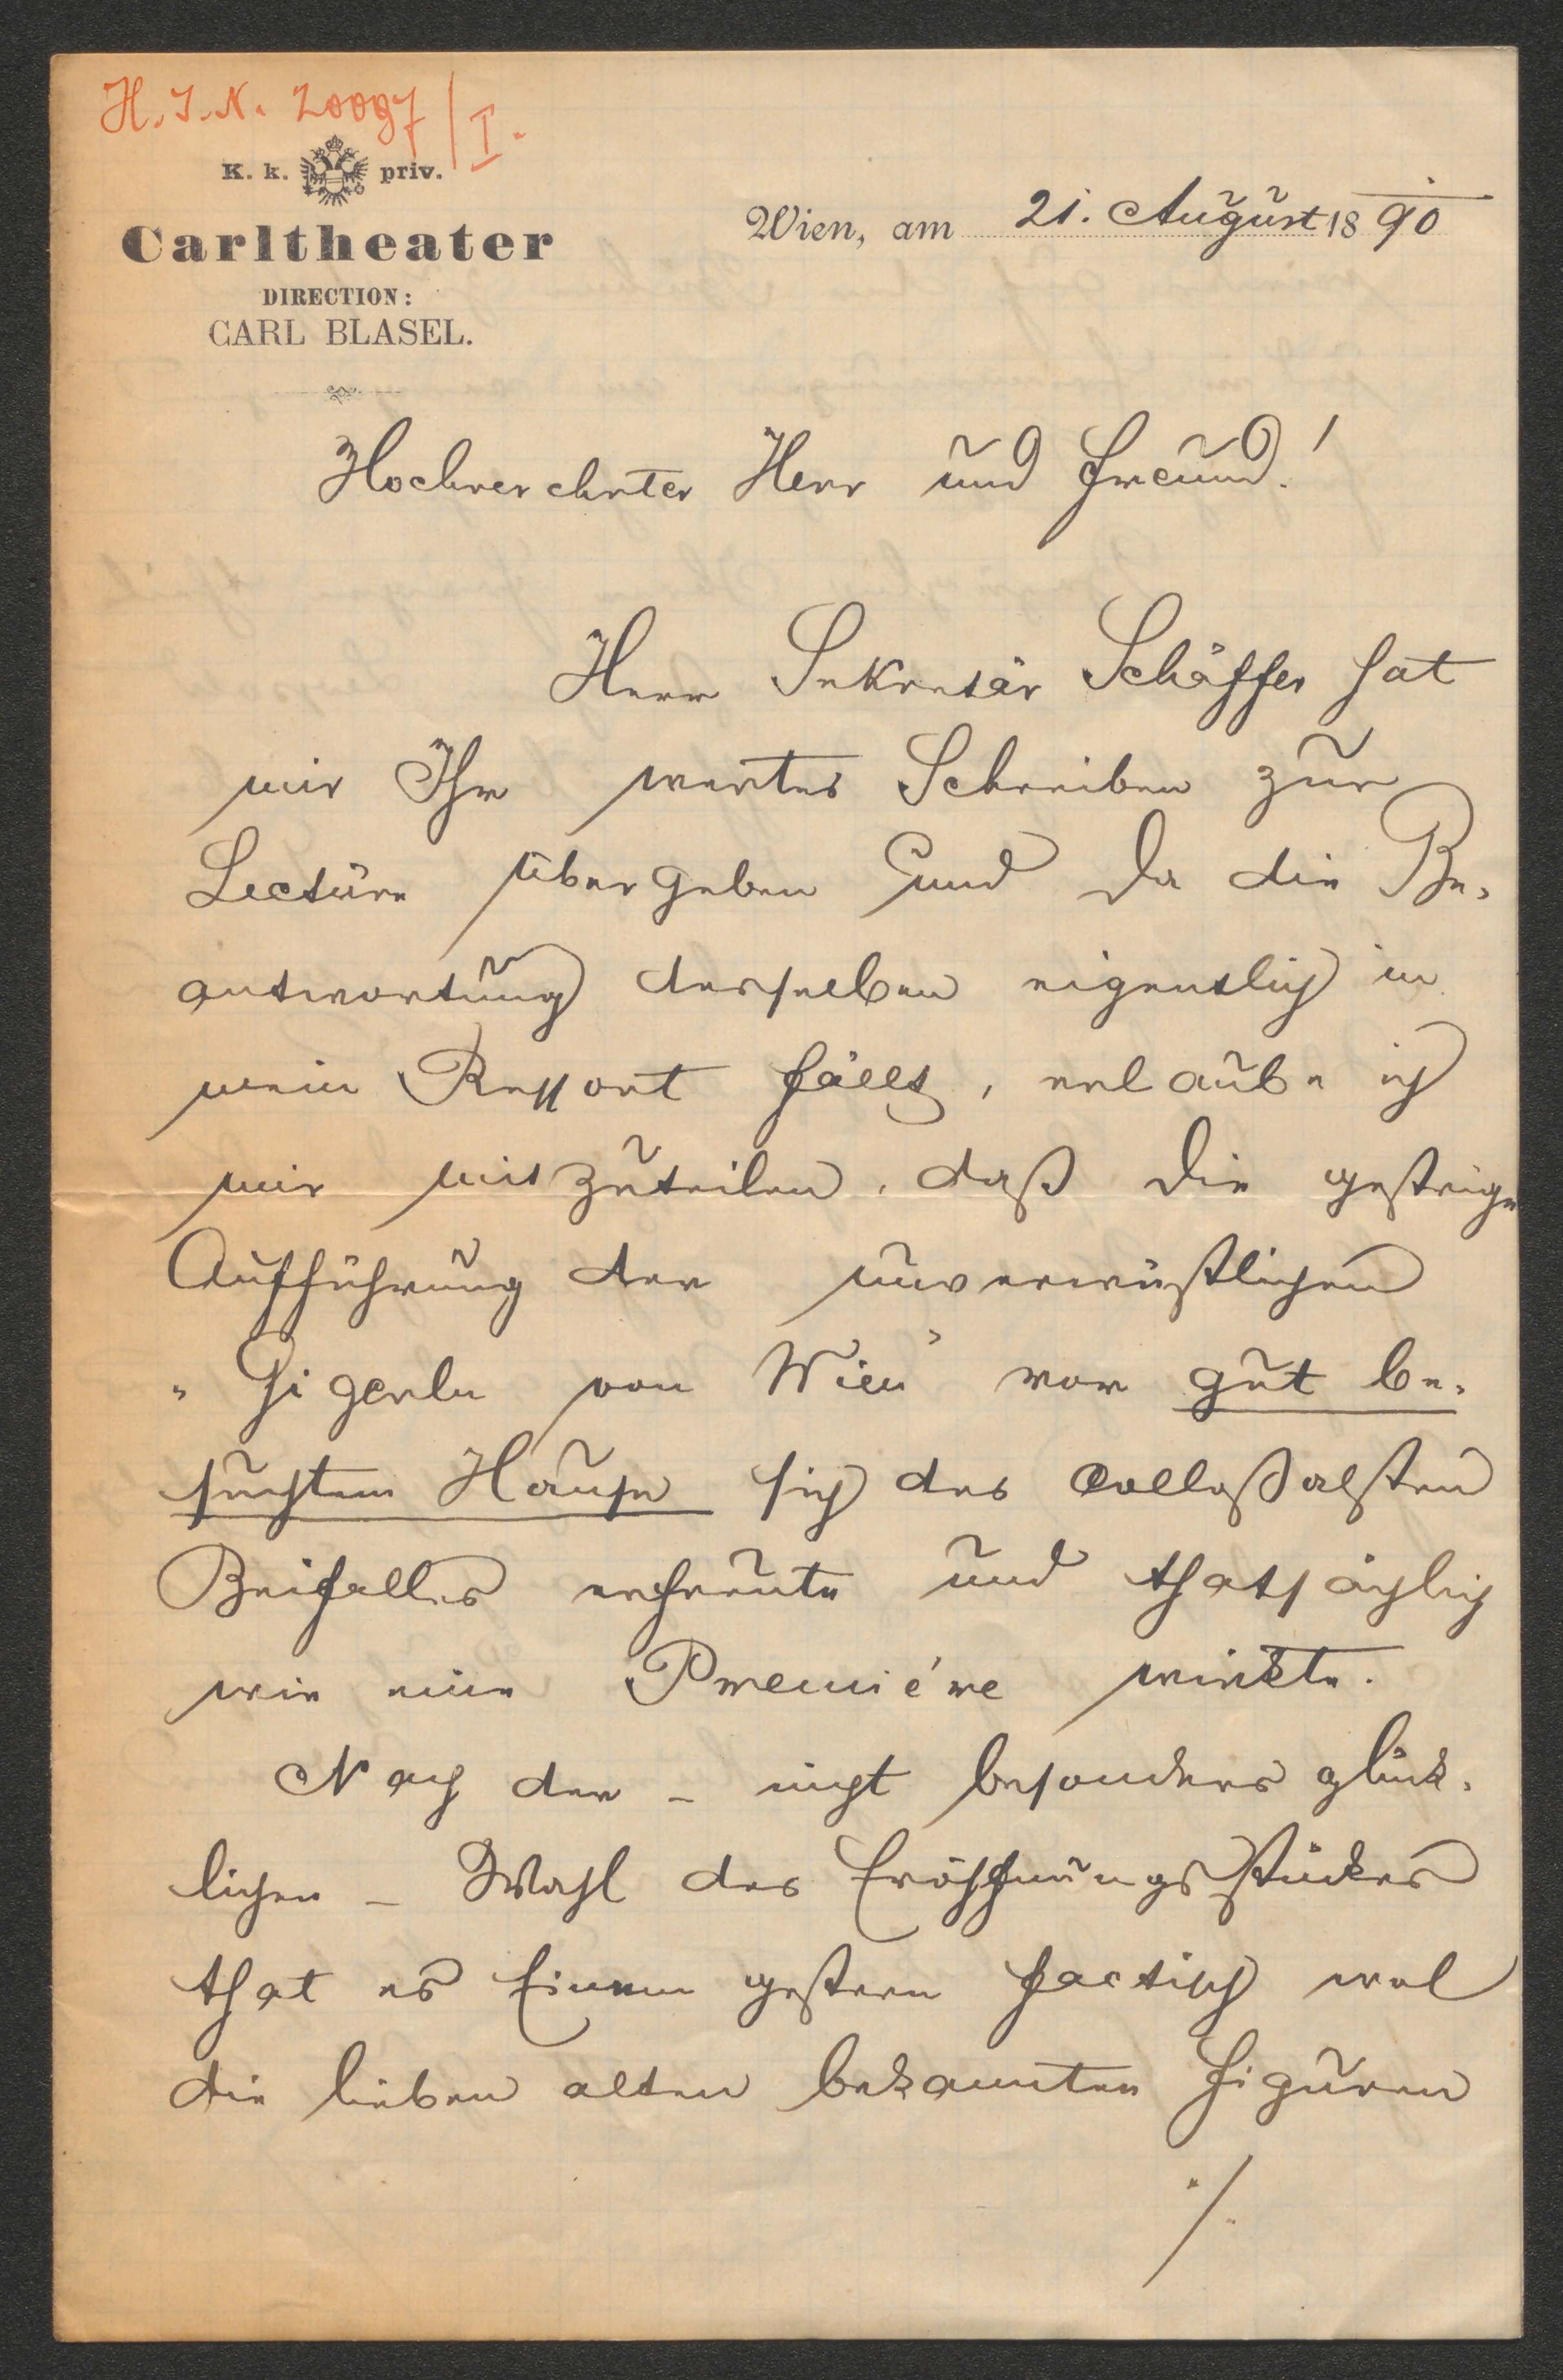 H. I. N. 20097/I.
K. k. priv.
Carltheater
DIRECTION:
CARL BLASEL.
Wien, am 21. August 1890
Hochverehrter Herr und Freund!
Herr Sekretär Schäffer hat
mir Ihr wertes Schreiben zur
Lectüre übergeben und da die Be-
antwortung desselben eigentlich in
mein Ressort fällt, erlaube ich
mir mitzuteilen, daß die gestrige
Aufführung der unverwüstlichen
„Gigerln von Wien" vor gut be-
suchtem Hause sich des colloßalsten
Beifalles erfreute und thatsächlich
wie eine Premiére wirkte.
Nach der – nicht besonders glück-
lichen – Wahl des Eröffnungsstückes
that es Einem gestern factisch wol
die lieben alten bekannten Figuren
./.